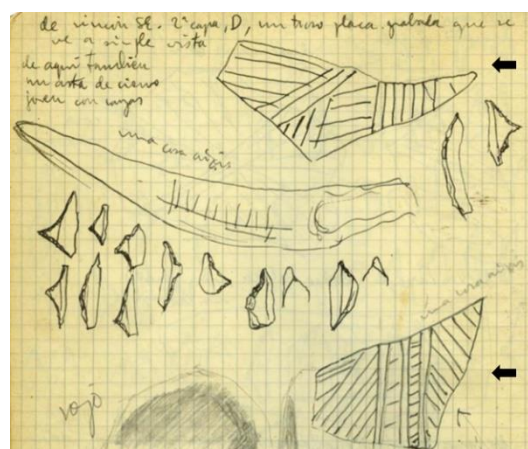 de rincón SE. 2ª capa, D, un trozo placa grabada que se
ve a simple vista
de aquí también
un asta de ciervo
joven con rayas
una cosa así
una cosa así
rojo